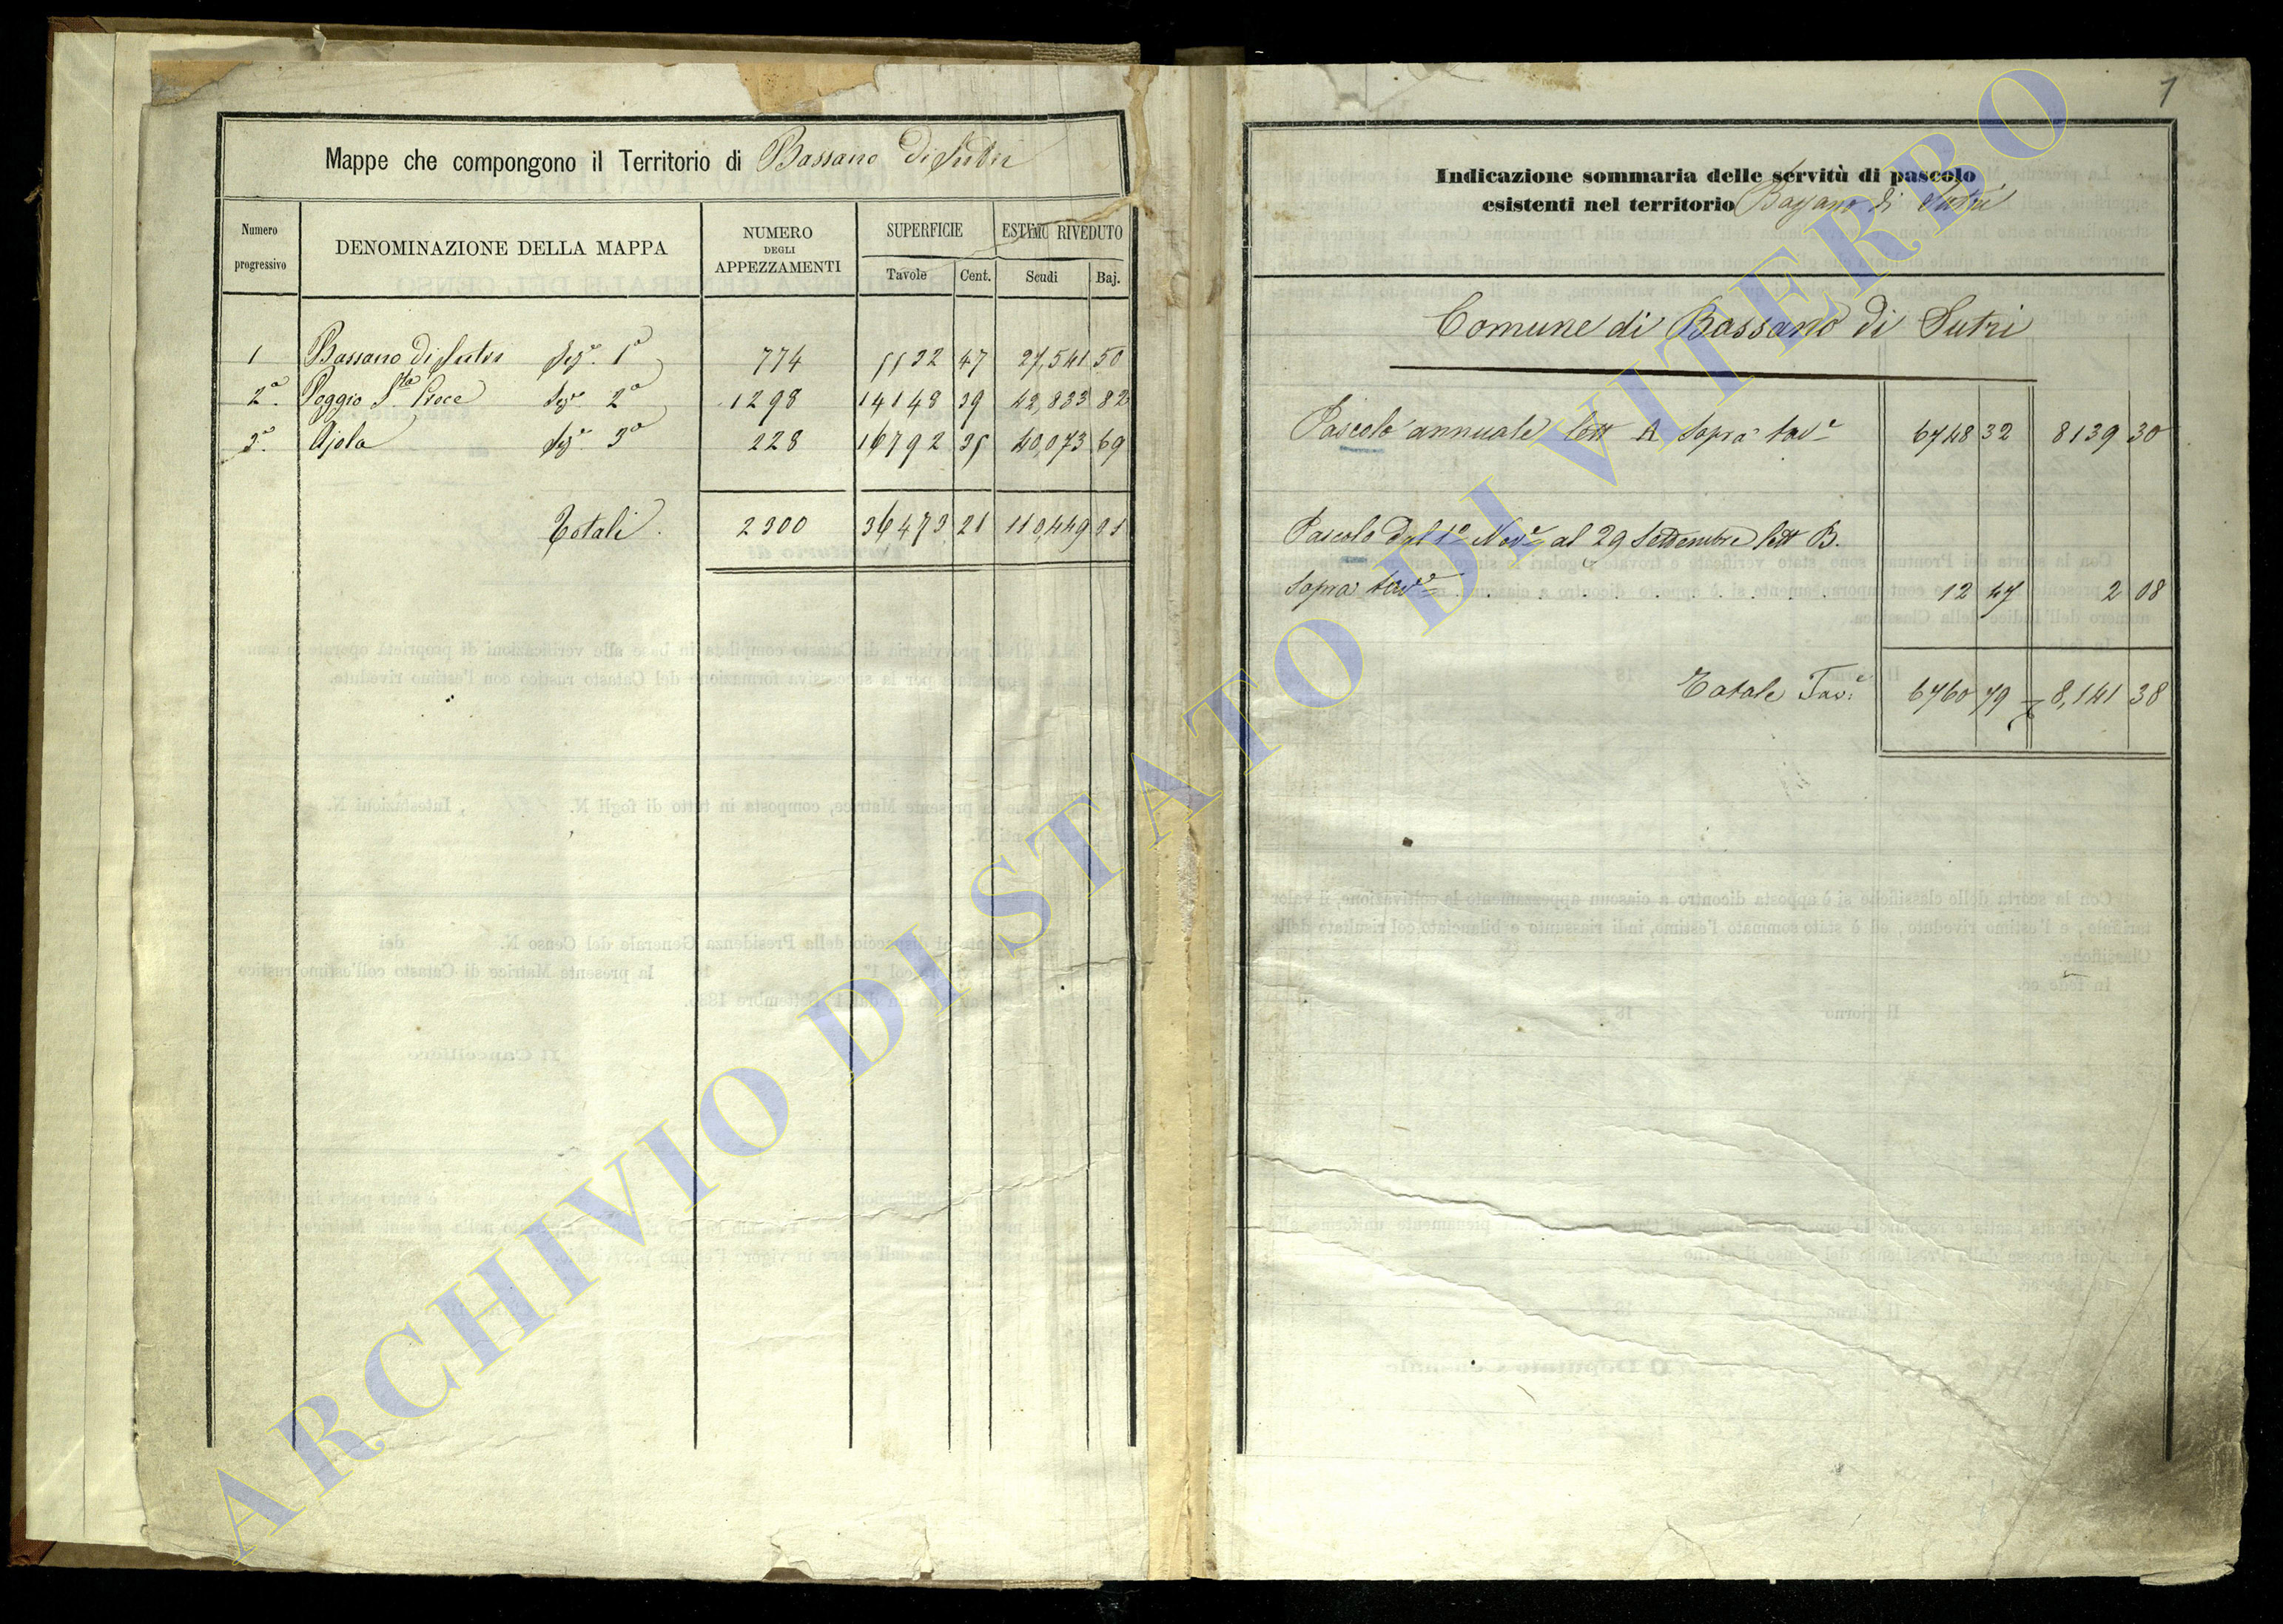 1
Mappe che compongono il Territorio di Bassano di Sutri
Numero progressivo
DENOMINAZIONE DELLA MAPPA
NUMERO DEGLI APPEZZAMENTI
SUPERFICIE
ESTIMO RIVEDUTO
Tavole Cent. Scudi Baj.
1 Bassano di Sutri Sez.e 1a 774 5532 47 27,541 50
2a. Poggio Sta Croce Sez.e 2a 1298 14148 39 42,833 82
3a. Ajola Sez.e 3a 228 16792 35 40,073 69
Totali. 2300 36473 21 110,449 01
Indicazione sommaria delle servitù di pascolo
esistenti nel territorio Bassano di Sutri
Comune di Bassano di Sutri
Pascolo annuale lett A sopra tav.e 6748 32 8139 30
Pascolo dal 1o Nov.e al 29 Settembre lett B.
sopra tav.e 12 47 2 08
Totale Tav.e 6760 79 8,141 38
ARCHIVIO DI STATO DI VITERBO